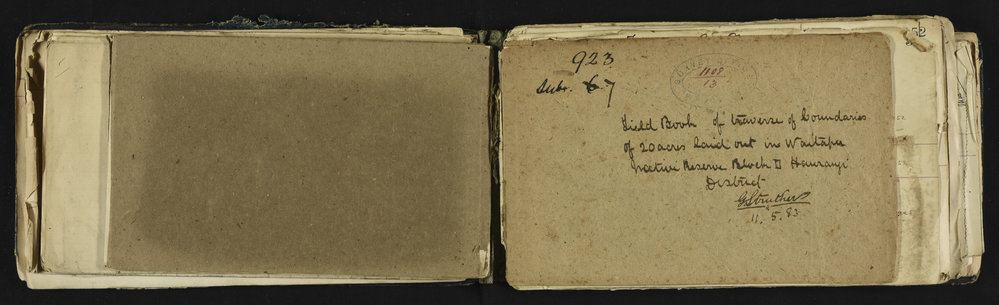 923
Subr. 6.7
1108
13
Field Book of traverse of boundaries
of 20 acres laid out in Waitapu
Native Reserve Block II Hauraugi
District
G Struthers
11. 5. 83
52